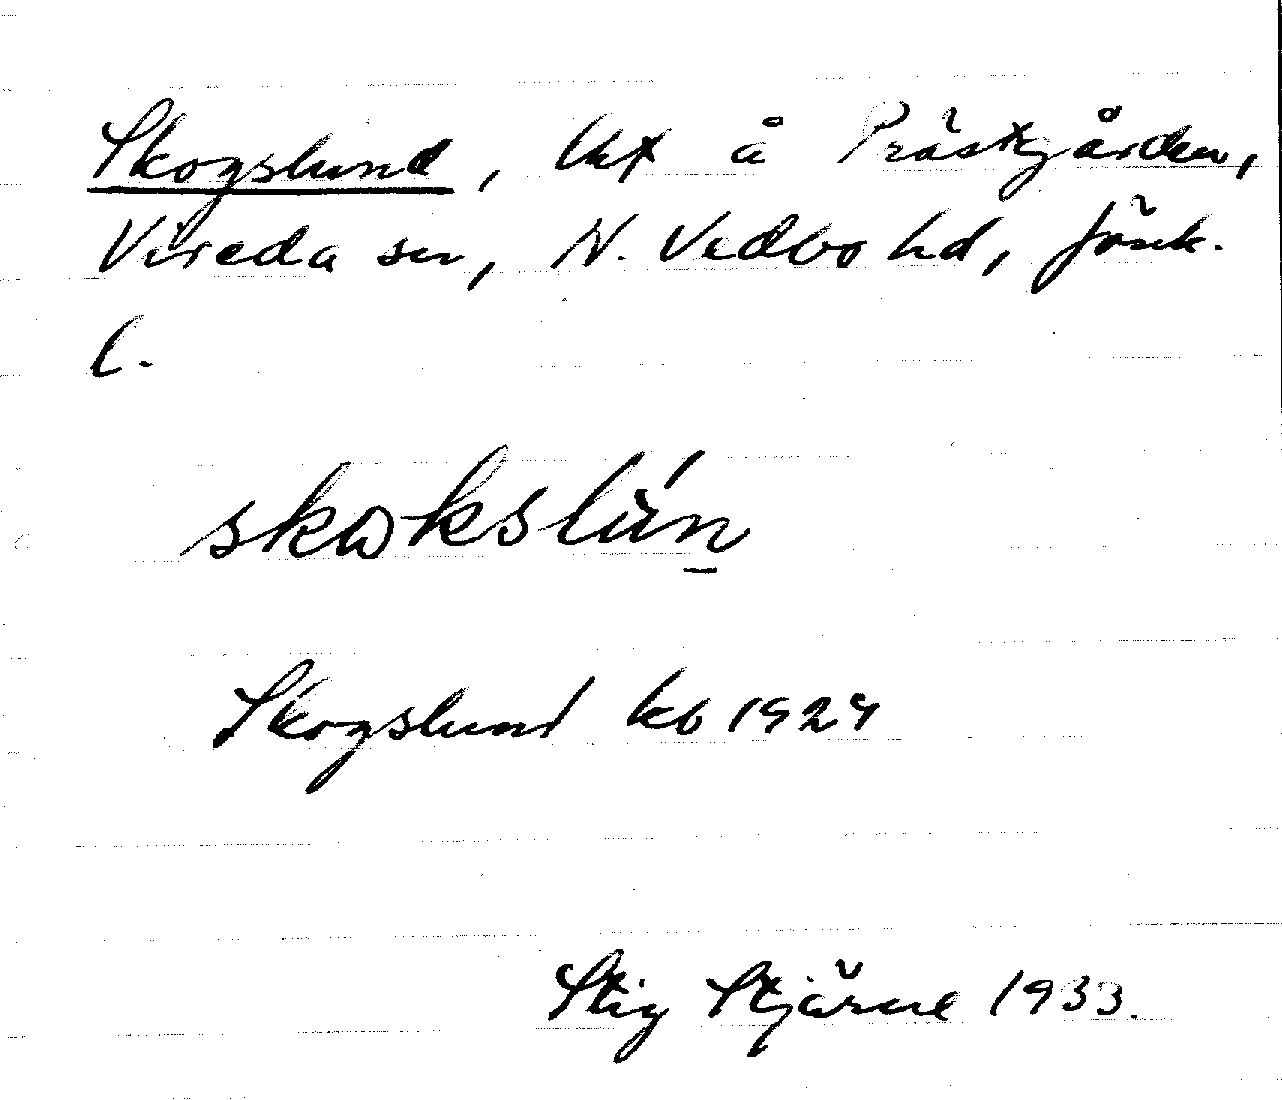 Skogslund, lht å Prästgården,
Vireda sn, N. Vedbo hd, Jönk.
l.
skωkslún̠
Skogslund kb 1929
Stig Stjärne 1933.